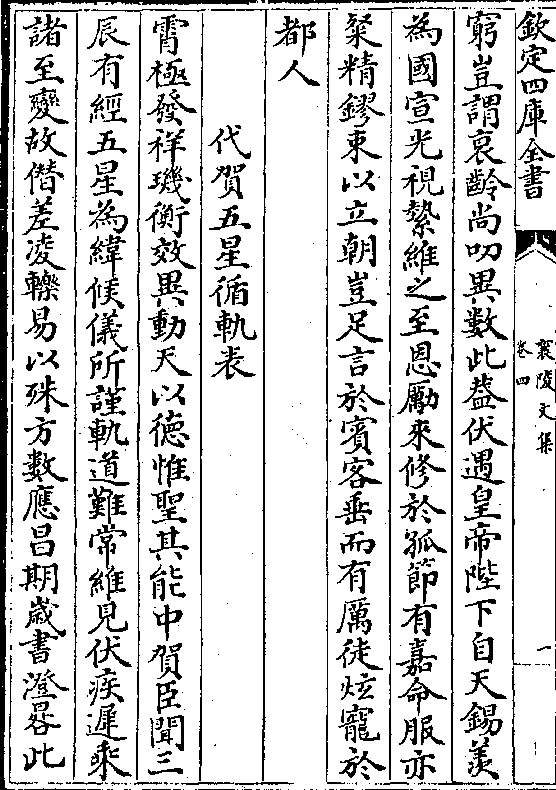 欽定四庫全書
襄陵文集
卷四
一
窮豈謂衰齡尚叨異數此葢伏遇皇帝陛下自天錫羡
為國宣光視縶維之至恩勵來修於孤節有嘉命服亦
粲精鏐束以立朝豈足言於賓客垂而有厲徒炫寵於
都人
代賀五星循軌表
霄極發祥璣衡效異動天以德惟聖其能中賀臣聞三
辰有經五星為緯候儀所謹軌道難常維見伏疾遲乘
諸至變故僭差凌轢易以殊方數應昌期歲書澄晷此